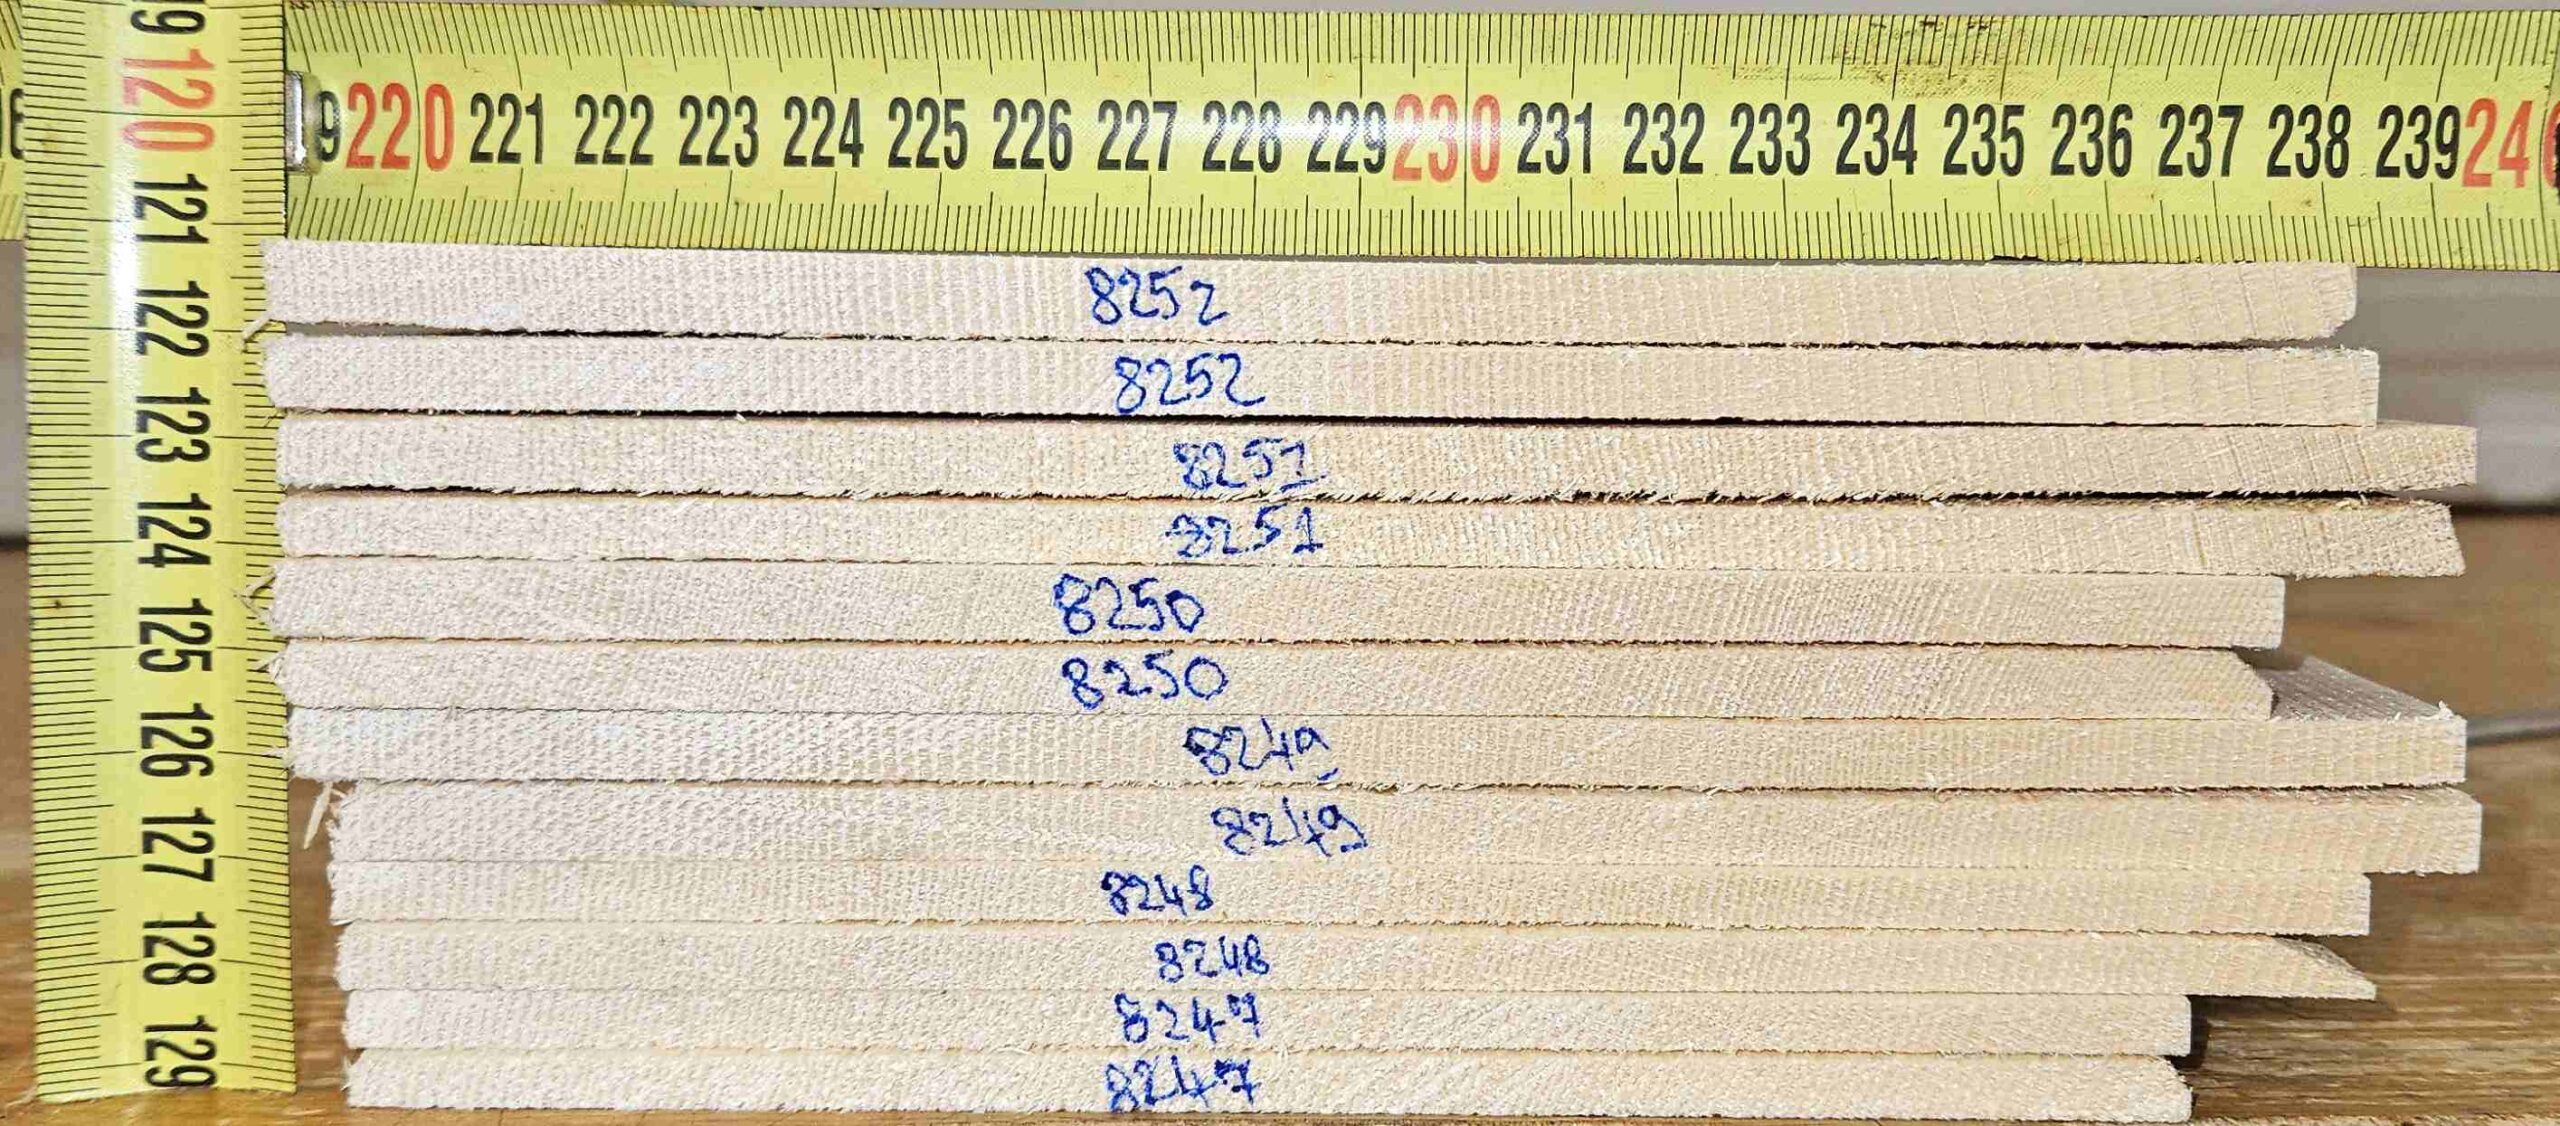 9 220 221 222 223 224 225 226 227 228 229 230 231 232 233 234 235 236 237 238 239 240
120
121
122
123
124
125
126
127
128
129
8252
8252
8251
8251
8250
8250
8249
8249
8248
8248
8247
8247